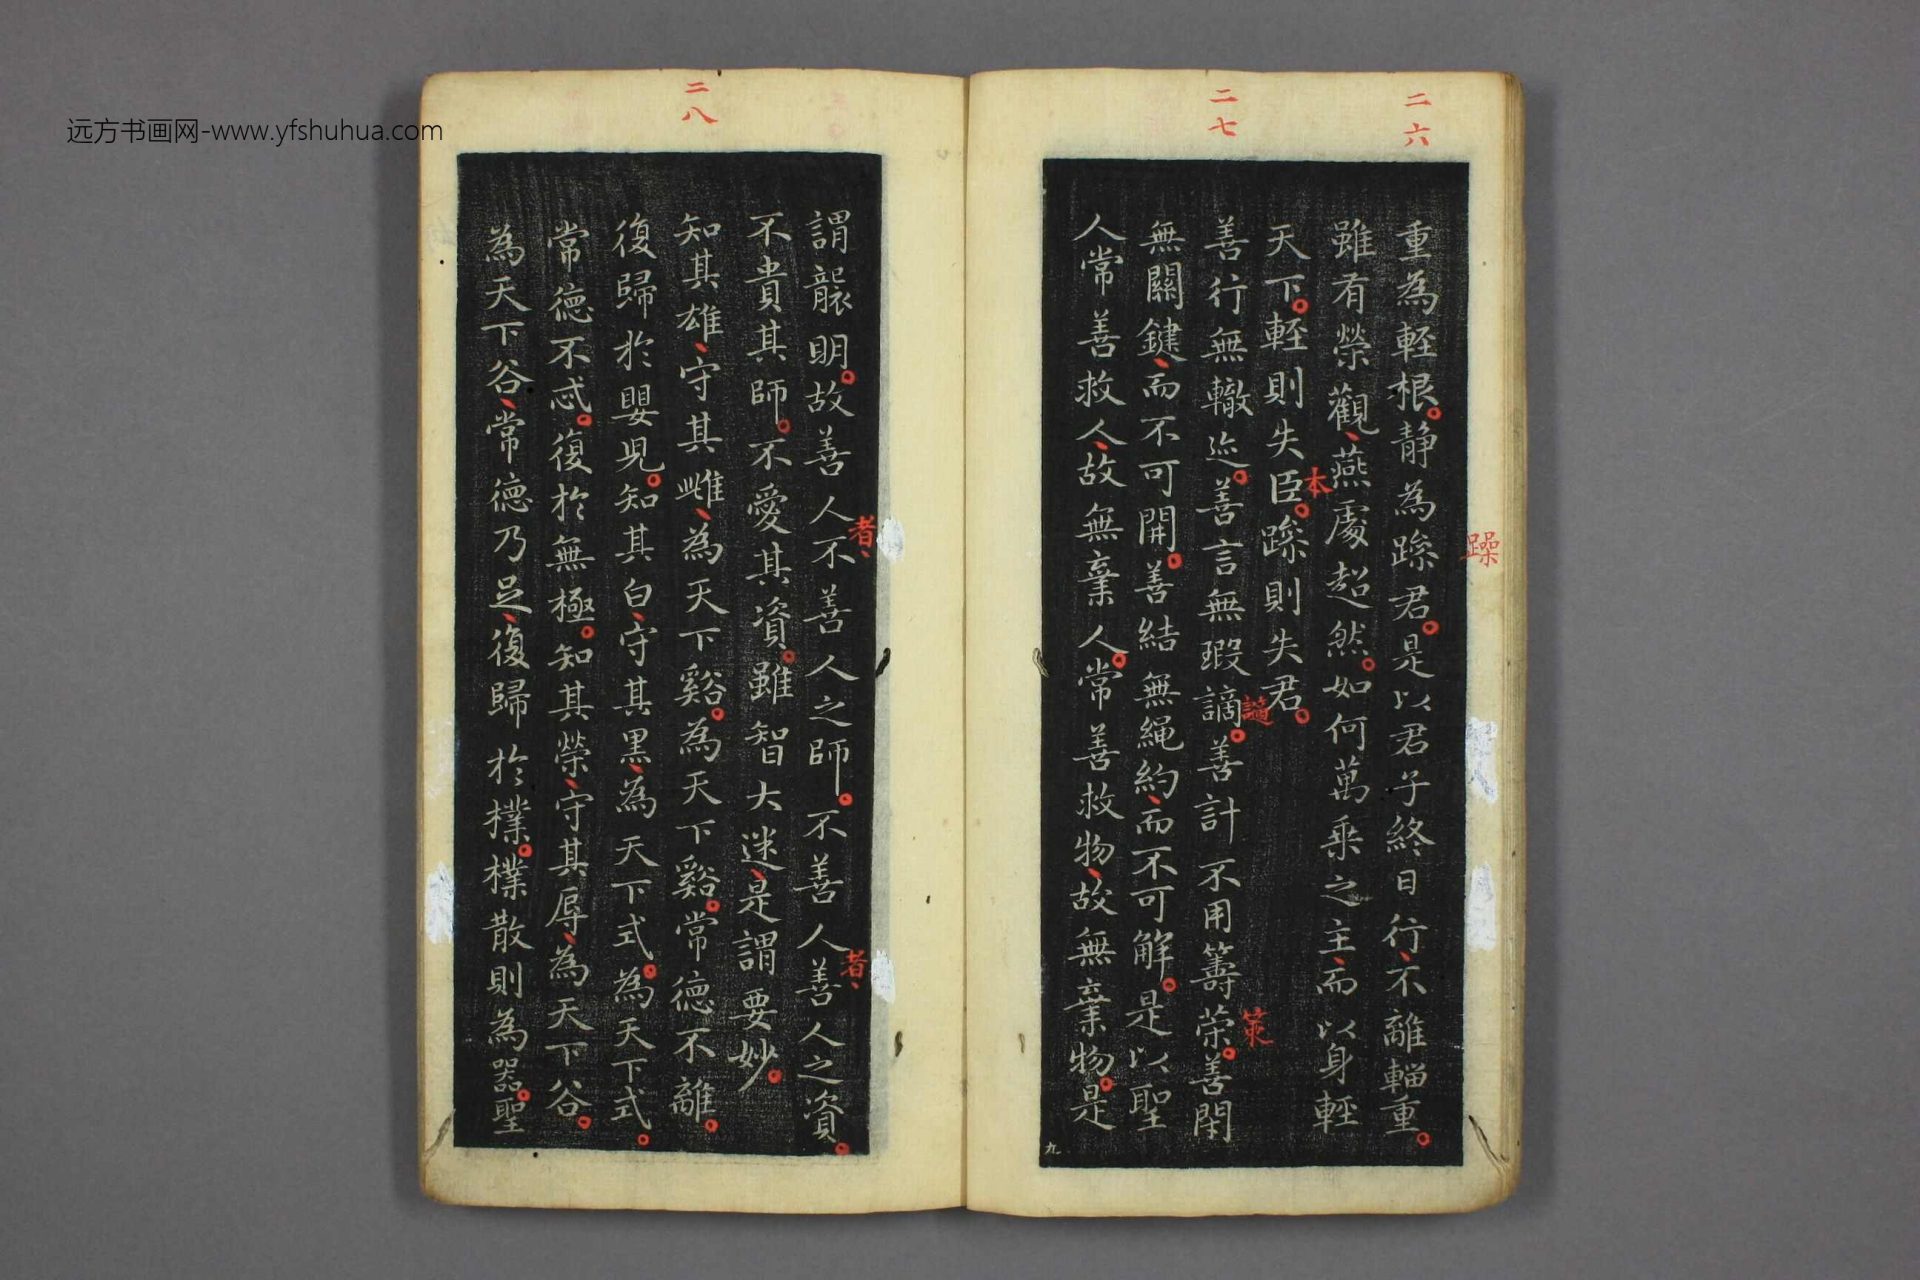 远方书画网-www.yfshuhua.com
二六
二七
重為輊根靜為躁君是以君子終日行不離輜重
躁
雖有榮觀燕處超然如何萬乘之主而以身輊
天下輊則失臣躁則失君
本
善行無轍迹善言無瑕謫善計不用籌策善閉
謫
策
無關鍵而不可開善結無繩約而不可解是以聖
人常善救人故無棄人常善救物故無棄物是
九
二八
謂襲明故善人不善人之師不善人善人之資
者
者
不貴其師不愛其資雖智大迷是謂要妙
知其雄守其雌為天下谿為天下谿常德不離
復歸於嬰兒知其白守其黑為天下式為天下式
常德不忒復於無極知其榮守其辱為天下谷
為天下谷常德乃足復歸於樸樸散則為器聖